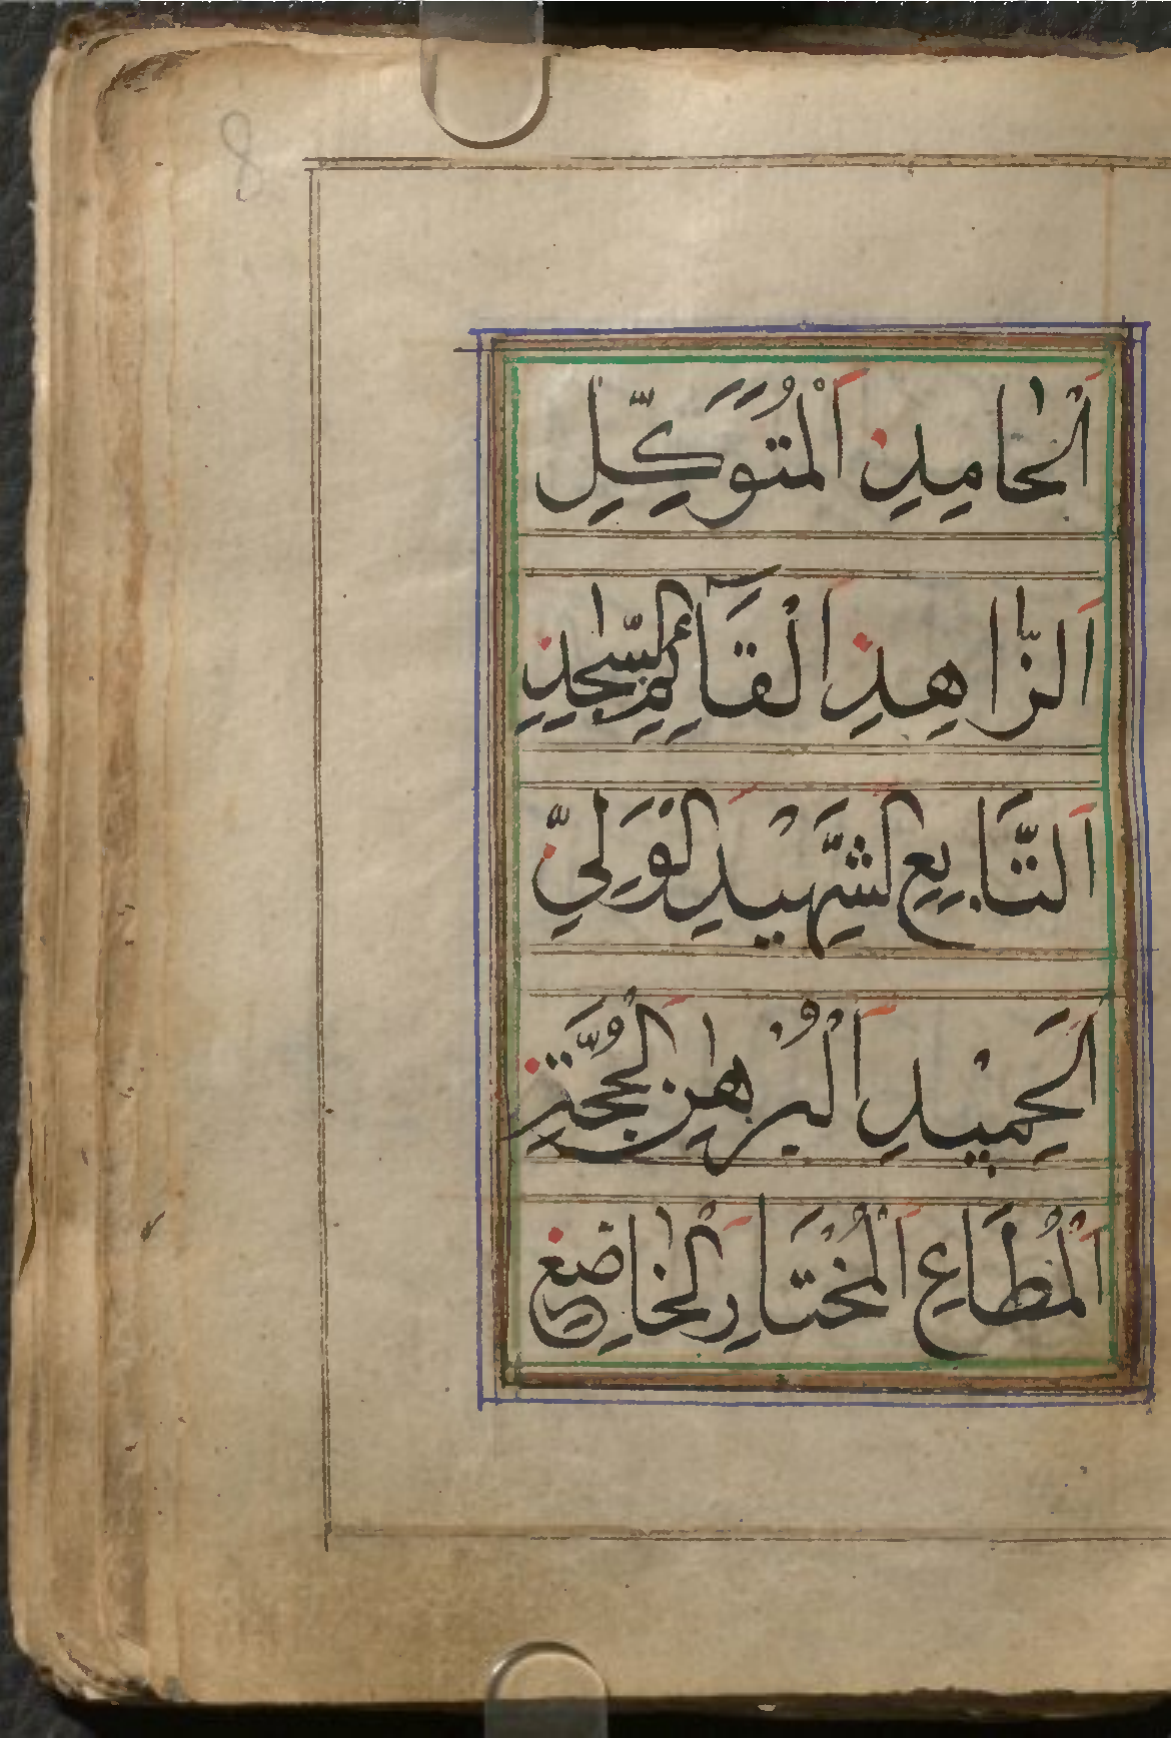 8
اَلْحَامِدِ اَلْمُتَوَكِّلِ
اَلزَّاهِدِ اَلْقَآئِمِ السّٰجِدِ
اَلتَّابِعِ الشَّهِيْدِ الْوَلِيِّ
اَلْحَمِيْدِ اَلْبُرْهٰنِ الْحُجَّةِ
اَلْمُطَاعِ اَلْمُخْتَارِ الْخَاضِعِ